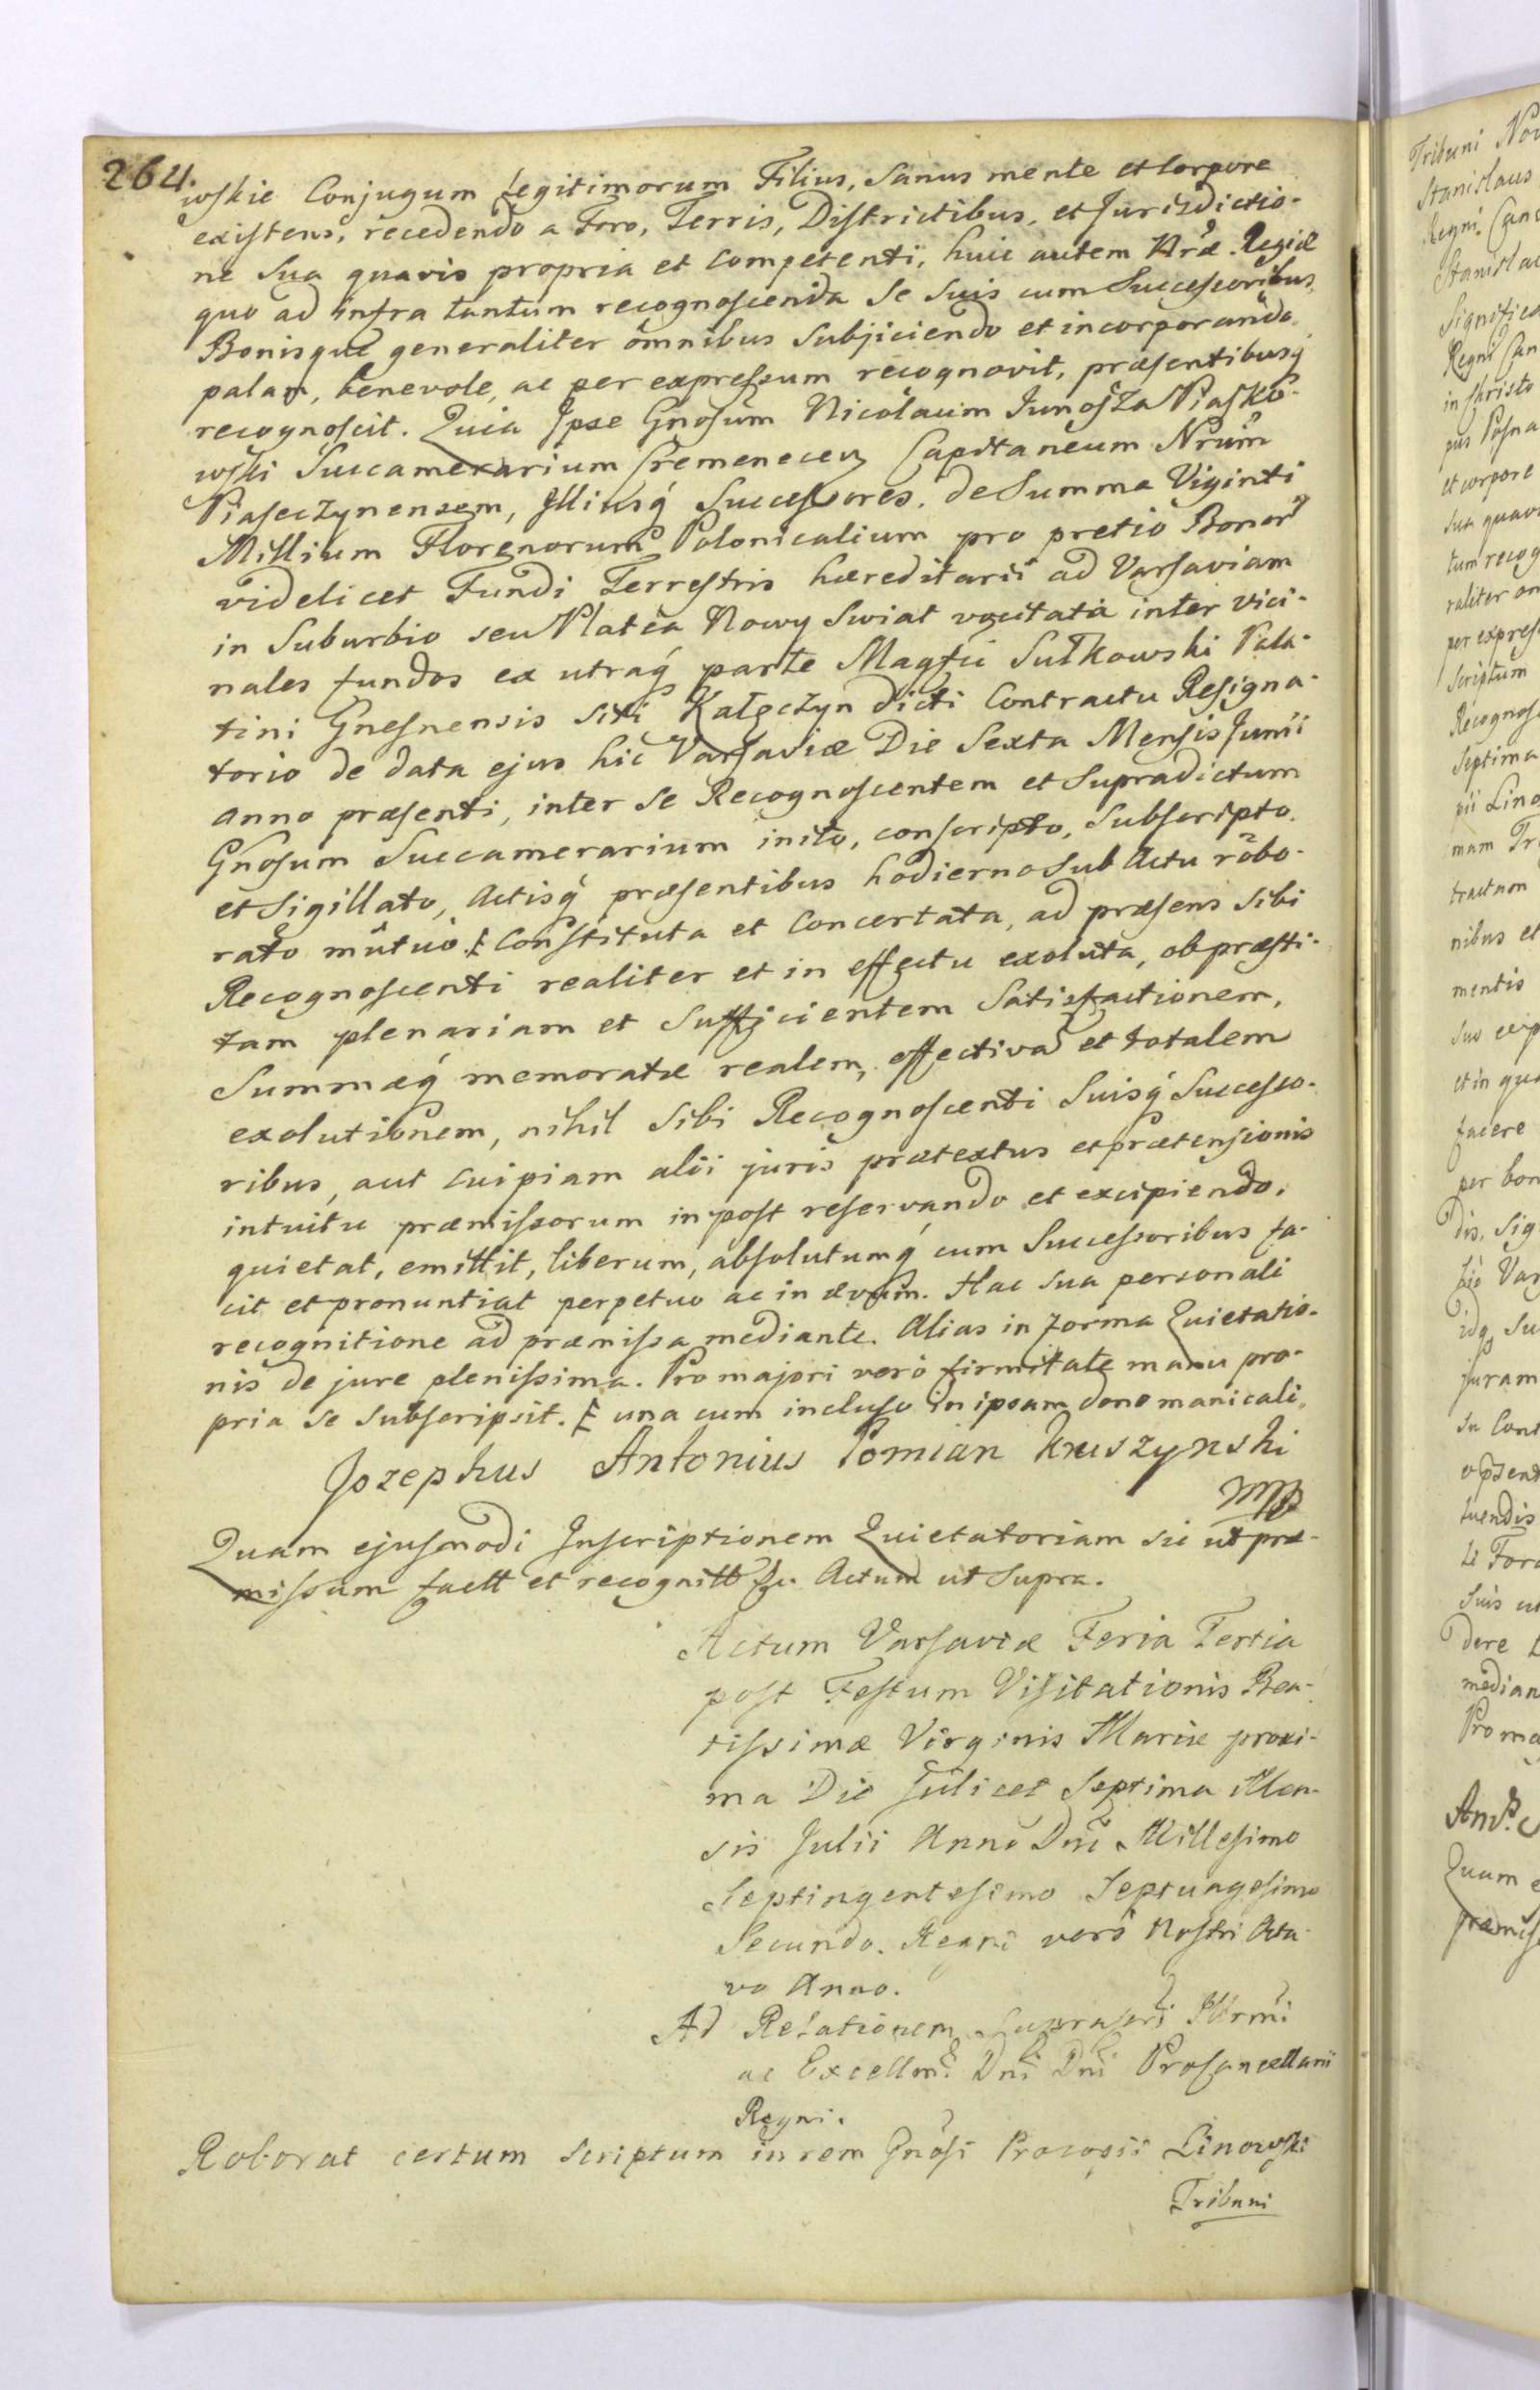 264.
wskie Conjugum Legitimorum Filius, Sanus mente et Corpore
existens, recedendo a Foro, Terris, Districtibus, et Jurisdictio-
ne Sua quavis propria et Competenti, huic autem Nræ Regiæ
quo ad infra tantum recognoscenda Se Suis cum Successoribus,
Bonisque generaliter omnibus Subjiciendo et incorporando.
palam, benevole, ac per expressum recognovit, præsentibusq́
recognoscit. Quia Ipse Gnosum Nicolaum Junosza Piasko-
wski Succamerarium Cremenecen Capitaneum Nrum
Piaseczynensem, Illiusq́ Successores. de Summa Viginti
Millium Florenorum Polonicalium pro pretio Bonor
videlicet Fundi Terrestris hæreditarii ad Varsaviam
in Suburbio seu Platea Nowy Swiat vocitata inter vici-
nales fundos ex utraq́ parte Magfci Sułkowski Pala-
tini Gnesnensis Siti Kałęczyn dicti Contractu Resigna-
torio de data ejus hic Varsaviæ Die Sexta Mensis Junii
anno præsenti, inter Se Recognoscentem et Supradictum
Gnosum Succamerarium inito, conscripto, Subscripto.
et Sigillato, Actisq́ præsentibus hodierno Sub Actu robo-
rato mutuo Constituta et Concertata, ad præsens Sibi
Recognoscenti realiter et in effectu exoluta, ob præsti-
tam plenariam et Sufficientem Satisfactionem,
Summæq́ memoratæ realem, effectiva et totalem
exolutionem, nihil Sibi Recognoscenti Suisq́ Successo-
ribus, aut cuipiam alii juris prætextus et prætensionis
intuitu præmissorum in post reservando et excipiendo,
quietat, emittit, liberum, absolutumq́ cum Successoribus fa-
cit et pronuntiat perpetuo ac in ævum. Hac Sua personali
recognitione ad præmissa mediante. Alias in forma Quietatio-
nis de jure plenissima. Pro majori vero firmitate manu pro-
pria Se Subscripsit. una cum incluso in ipsam dono manicali.
Jozephus Antonius Pomian Kruszynski
mp
Quam ejusmodi Inscriptionem Quietatoriam sic ut præ-
missum factt et recognitt Actum ut Supra.
Actum Varsaviæ Feria Tertia
post Festum Visitationis Bea-
tissimæ Virginis Mariæ proxi-
ma Die scilicet Septima Men-
sis Julii Anno Dni Millesimo
Septingentesimo Septuagesimo
Secundo. Regni vero Nostri Octa-
vo Anno.
Ad Relationem Suprascri Illrmi
ac Excellmi Dni Dni Procancellarii
Regni.
Roborat certum scriptum in rem Gnosi Procopii Linowski
Tribuni
Tribuni
Stanislaus
Regni
Regni
et corpore
per expres
Scriptum
Septima
nibus et
mentis
facere
per bon
median